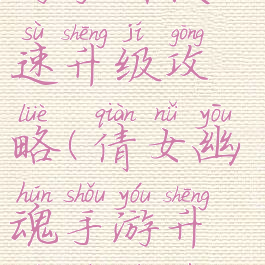 sù shēng jí gōng
速升级攻
lüè qiàn nǚ yōu
略(倩女幽
hún shǒu yóu shēng
魂手游升